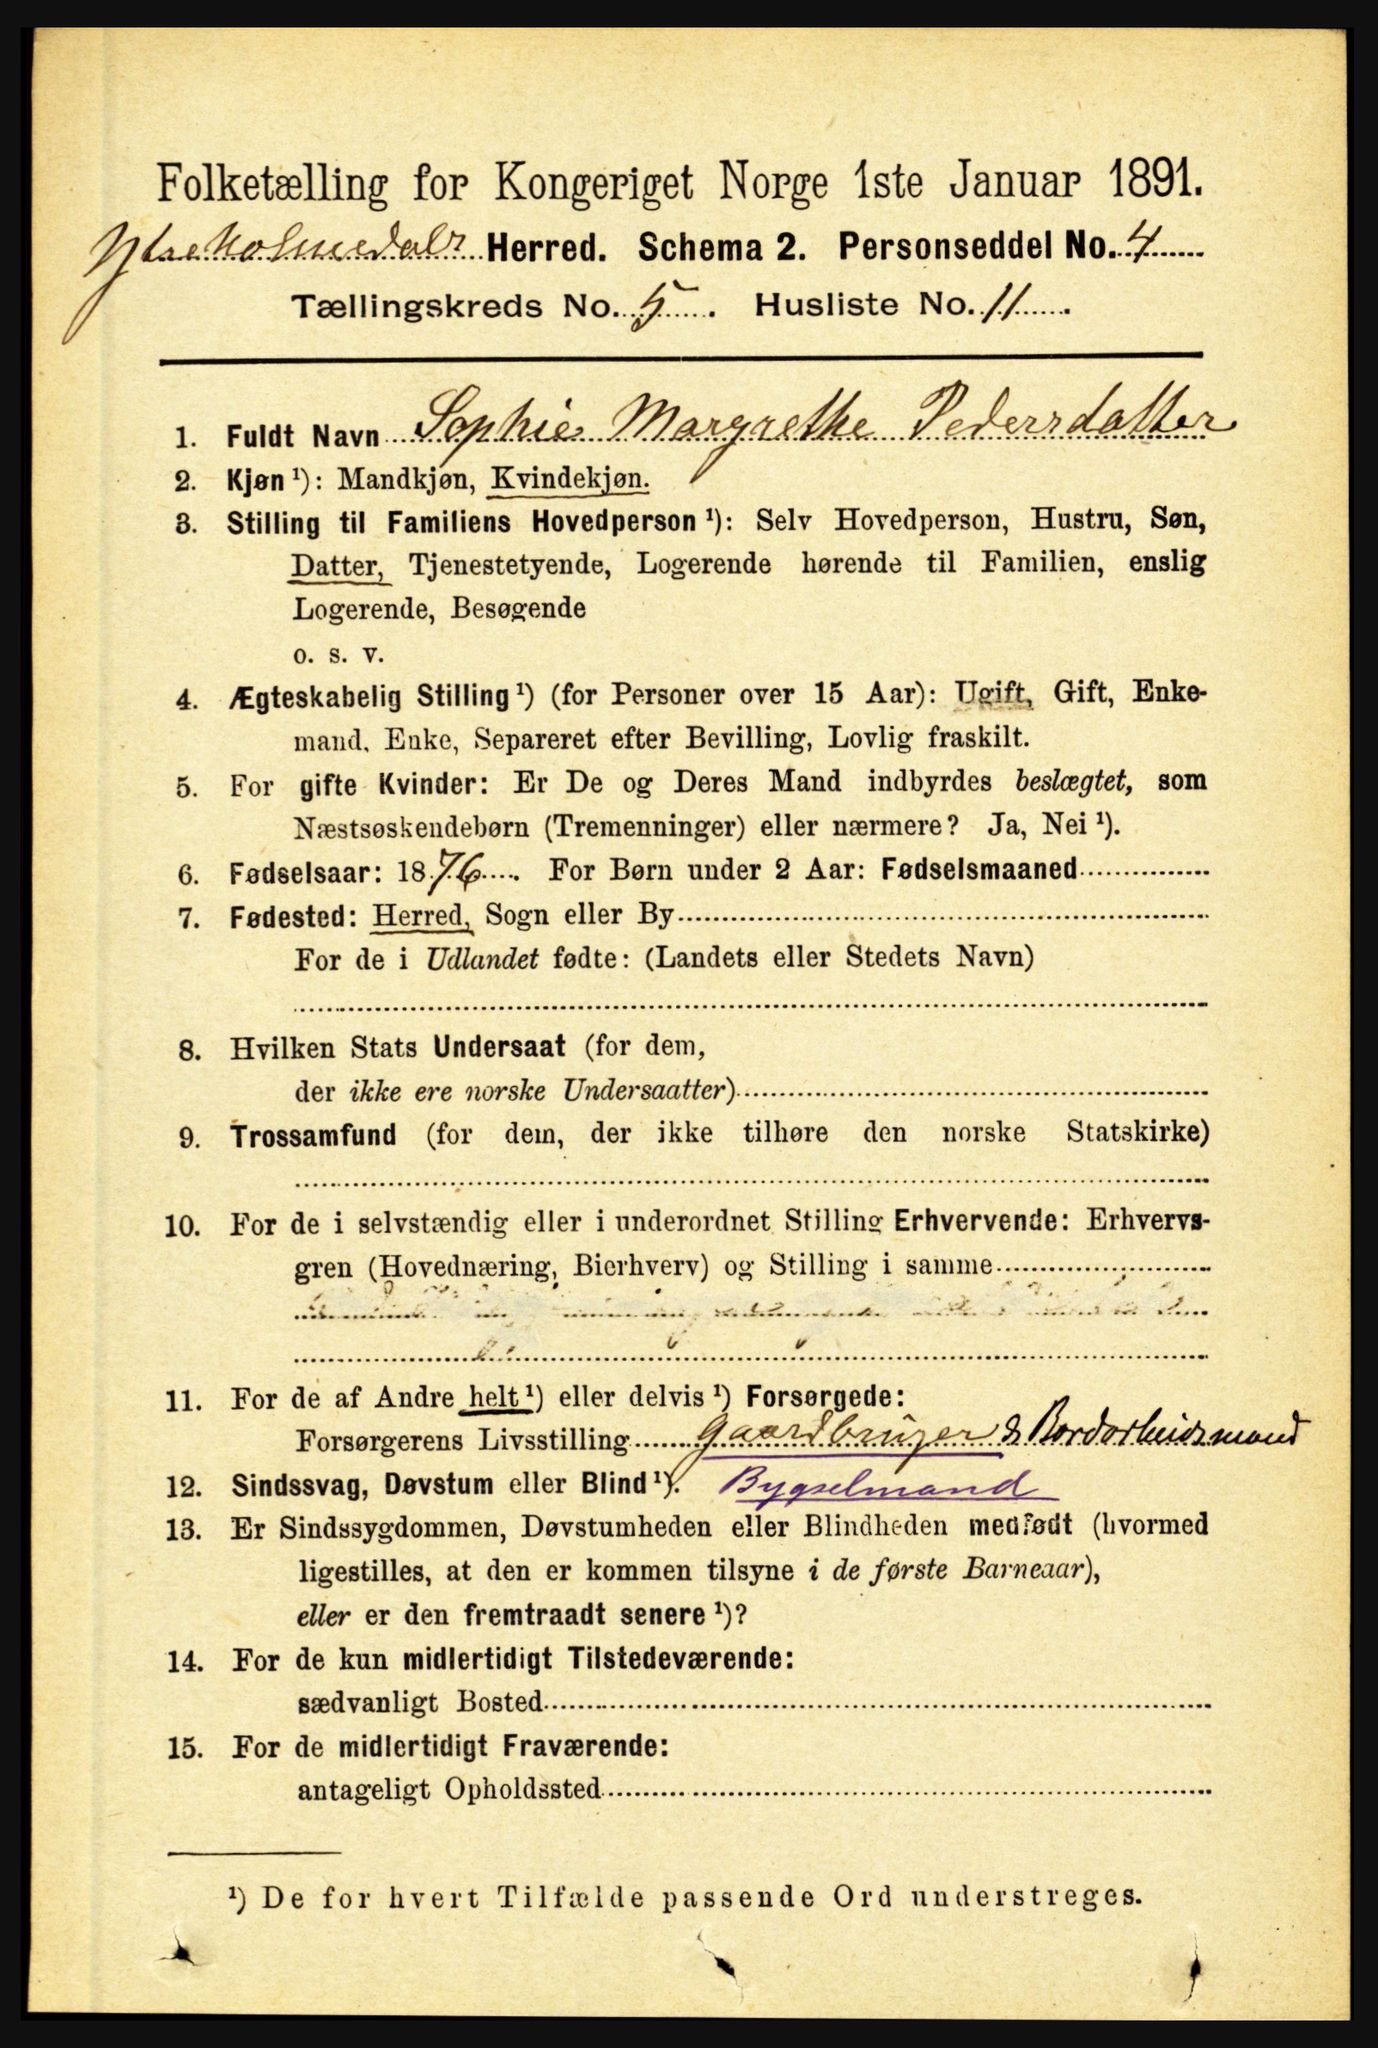 Folketælling for Kongeriget Norge 1ste Januar 1891.
Ytreholmedals Herred. Schema 2. Personseddel No. 4
Tællingskreds No. 5. Husliste No. 11.
1. Fuldt Navn Sophie Margrethe Pedersdatter
2. Kjøn ¹): Mandkjøn, Kvindekjøn.
3. Stilling til Familiens Hovedperson ¹): Selv Hovedperson, Hustru, Søn,
Datter, Tjenestetyende, Logerende hørende til Familien, enslig
Logerende, Besøgende
o. s. v.
4. Ægteskabelig Stilling ¹) (for Personer over 15 Aar): Ugift, Gift, Enke-
mand, Enke, Separeret efter Bevilling, Lovlig fraskilt.
5. For gifte Kvinder: Er De og Deres Mand indbyrdes beslægtet, som
Næstsøskendebørn (Tremenninger) eller nærmere? Ja, Nei ¹).
6. Fødselsaar: 1876. For Børn under 2 Aar: Fødselsmaaned
7. Fødested: Herred, Sogn eller By
For de i Udlandet fødte: (Landets eller Stedets Navn)
8. Hvilken Stats Undersaat (for dem,
der ikke ere norske Undersaatter)
9. Trossamfund (for dem, der ikke tilhøre den norske Statskirke)
10. For de i selvstændig eller i underordnet Stilling Erhvervende: Erhvervs-
gren (Hovednæring, Bierhverv) og Stilling i samme
11. For de af Andre helt ¹) eller delvis ¹) Forsørgede:
Forsørgerens Livsstilling Gaardbruger & Bordarbeidsmand
12. Sindssvag, Døvstum eller Blind ¹). Bygselmand
13. Er Sindssygdommen, Døvstumheden eller Blindheden medfødt (hvormed
ligestilles, at den er kommen tilsyne i de første Barneaar),
eller er den fremtraadt senere ¹)?
14. For de kun midlertidigt Tilstedeværende:
sædvanligt Bosted
15. For de midlertidigt Fraværende:
antageligt Opholdssted
¹) De for hvert Tilfælde passende Ord understreges.